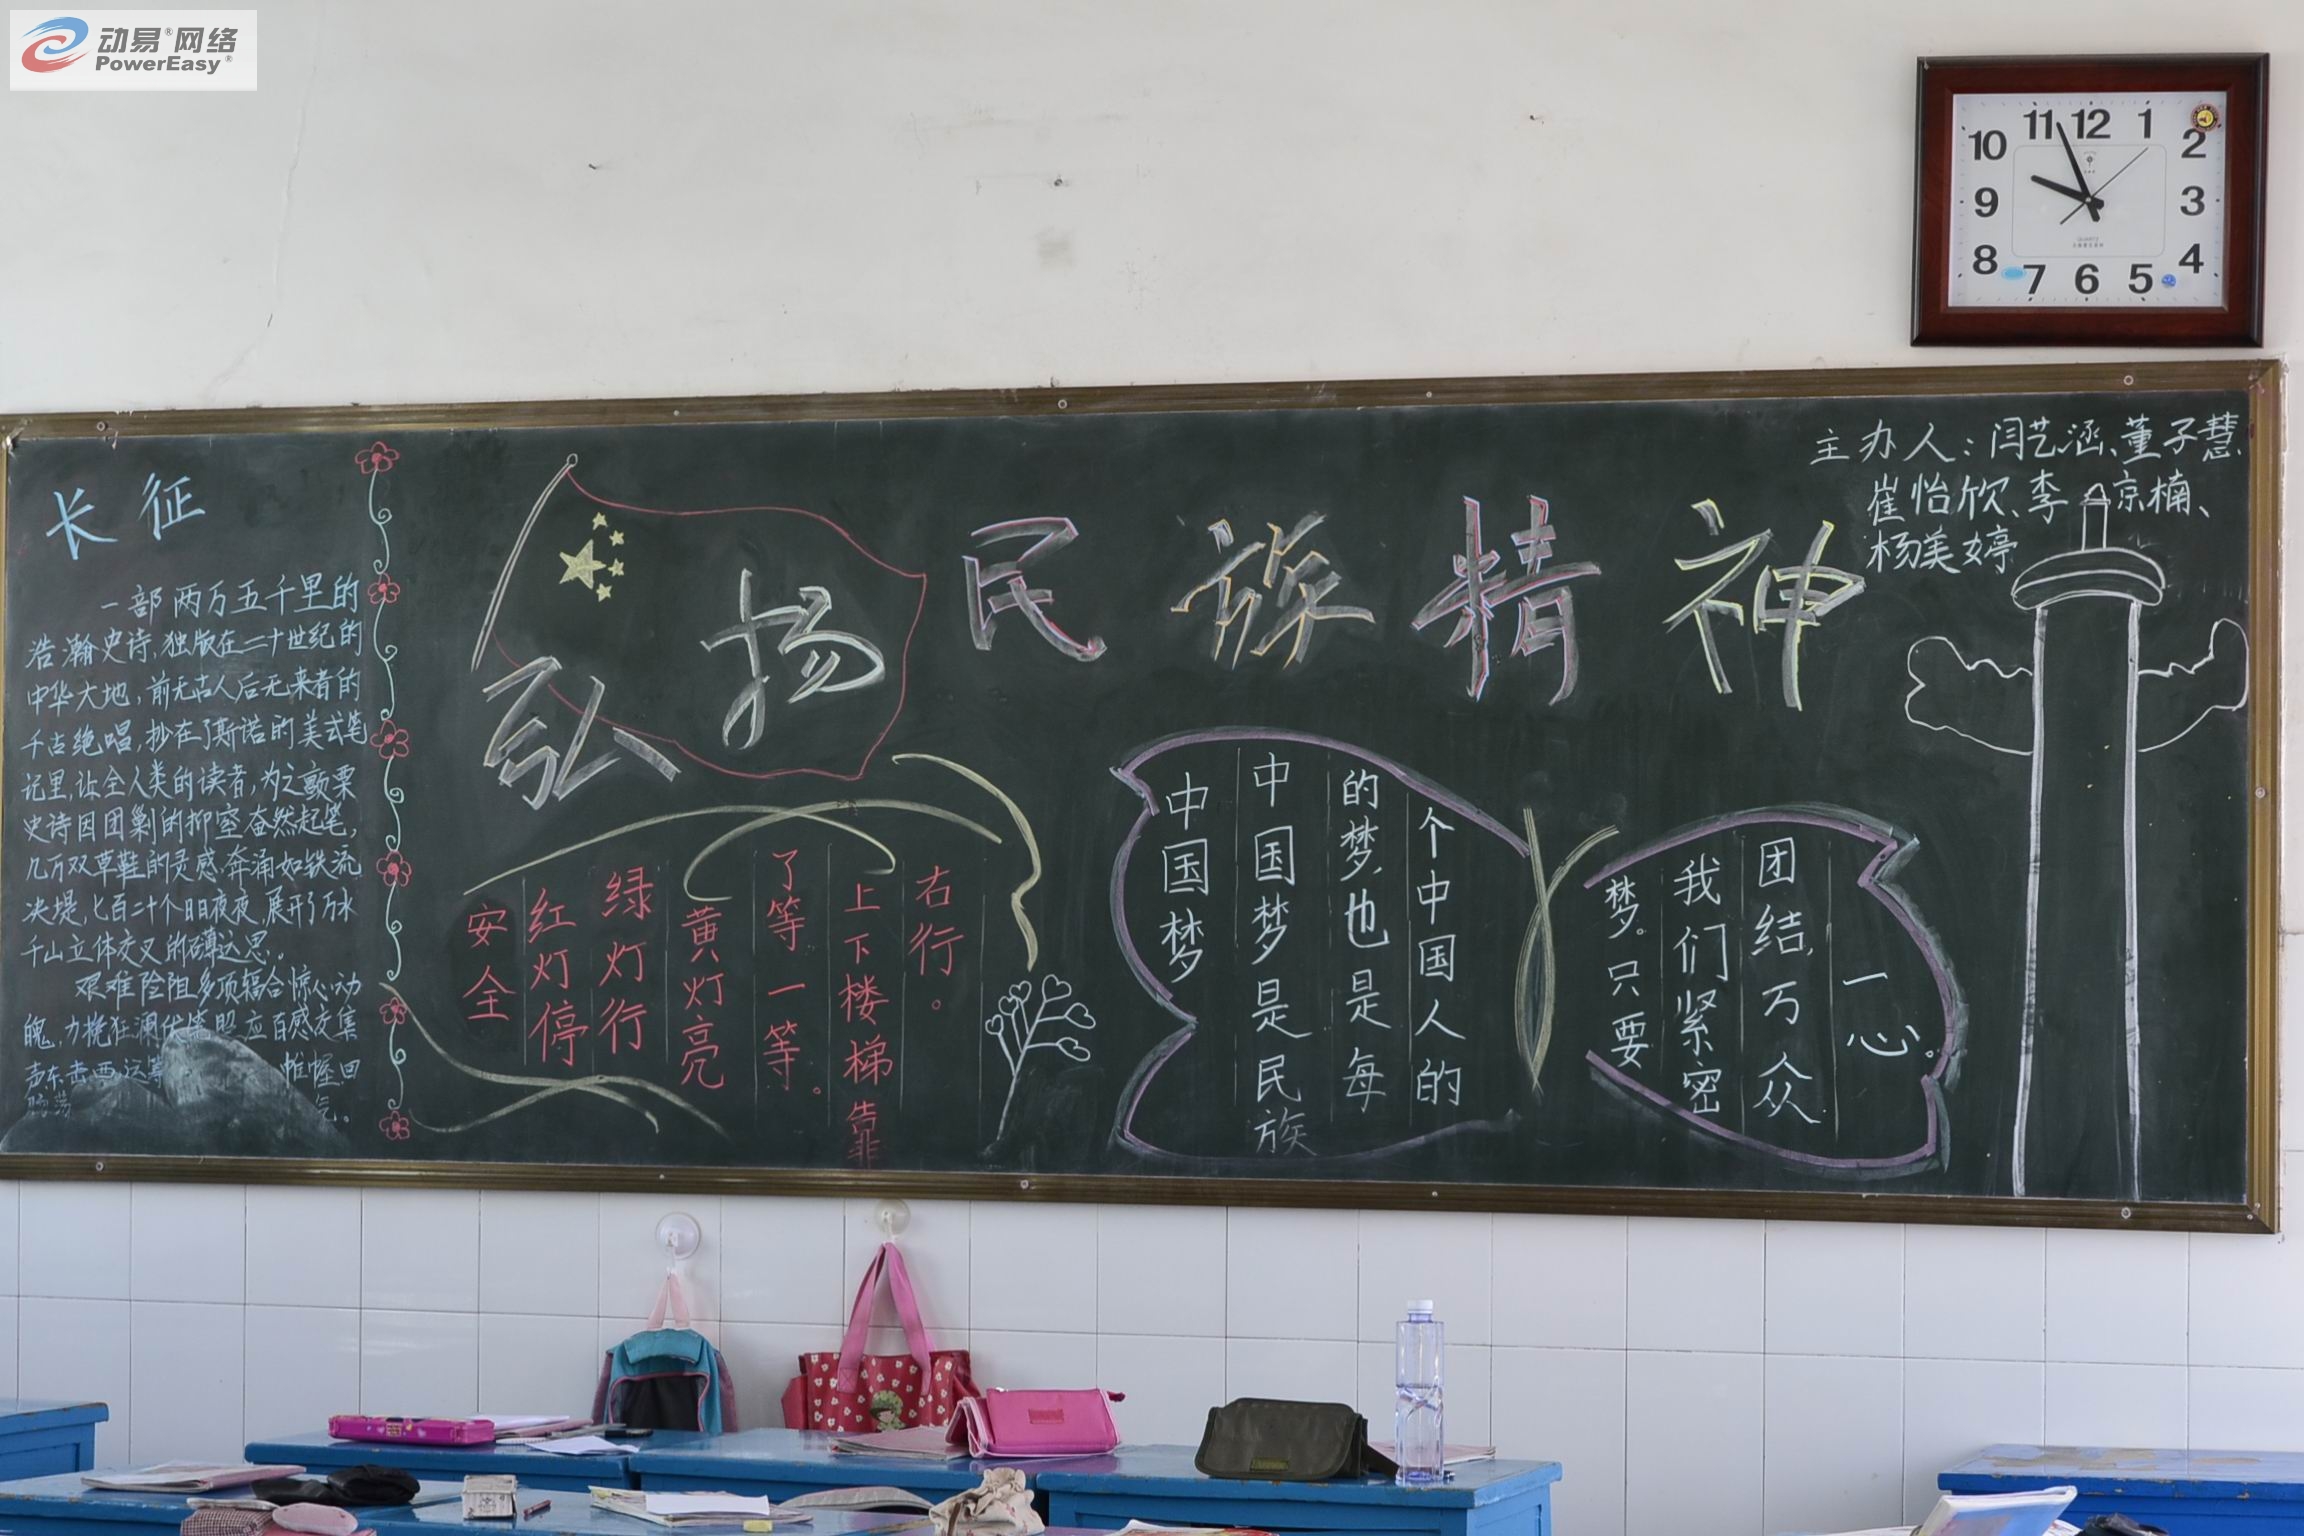 动易®网络
PowerEasy®
11 12 1
10 2
9 3
8 4
7 6 5
QUARTZ
主办人:闫艺涵、董子慧、
崔怡欣、李京楠、
杨美婷
弘扬民族精神
长征
一部两万五千里的
浩瀚史诗,独版在二十世纪的
中华大地,前无古人后无来者的
千古绝唱,抄在了斯诺的美式笔
记里,让全人类的读者,为之颤栗
史诗因团剿的抑窒奋然起笔,
几万双草鞋的灵感,奔涌如铁流
决堤,七百二十个日日夜夜,展开了万水
千山立体交叉的磅达思。
艰难险阻多项辐合惊心动
魄,力挽狂澜伏笔照应百感交集
声东击西,运筹帷幄,回
肠荡气。
安全
红灯停
绿灯行
黄灯亮
了等一等。
上下楼梯靠
右行。
中国梦
中国梦是民族
的梦,也是每
个中国人的
梦。只要
我们紧密
团结,万众
一心。